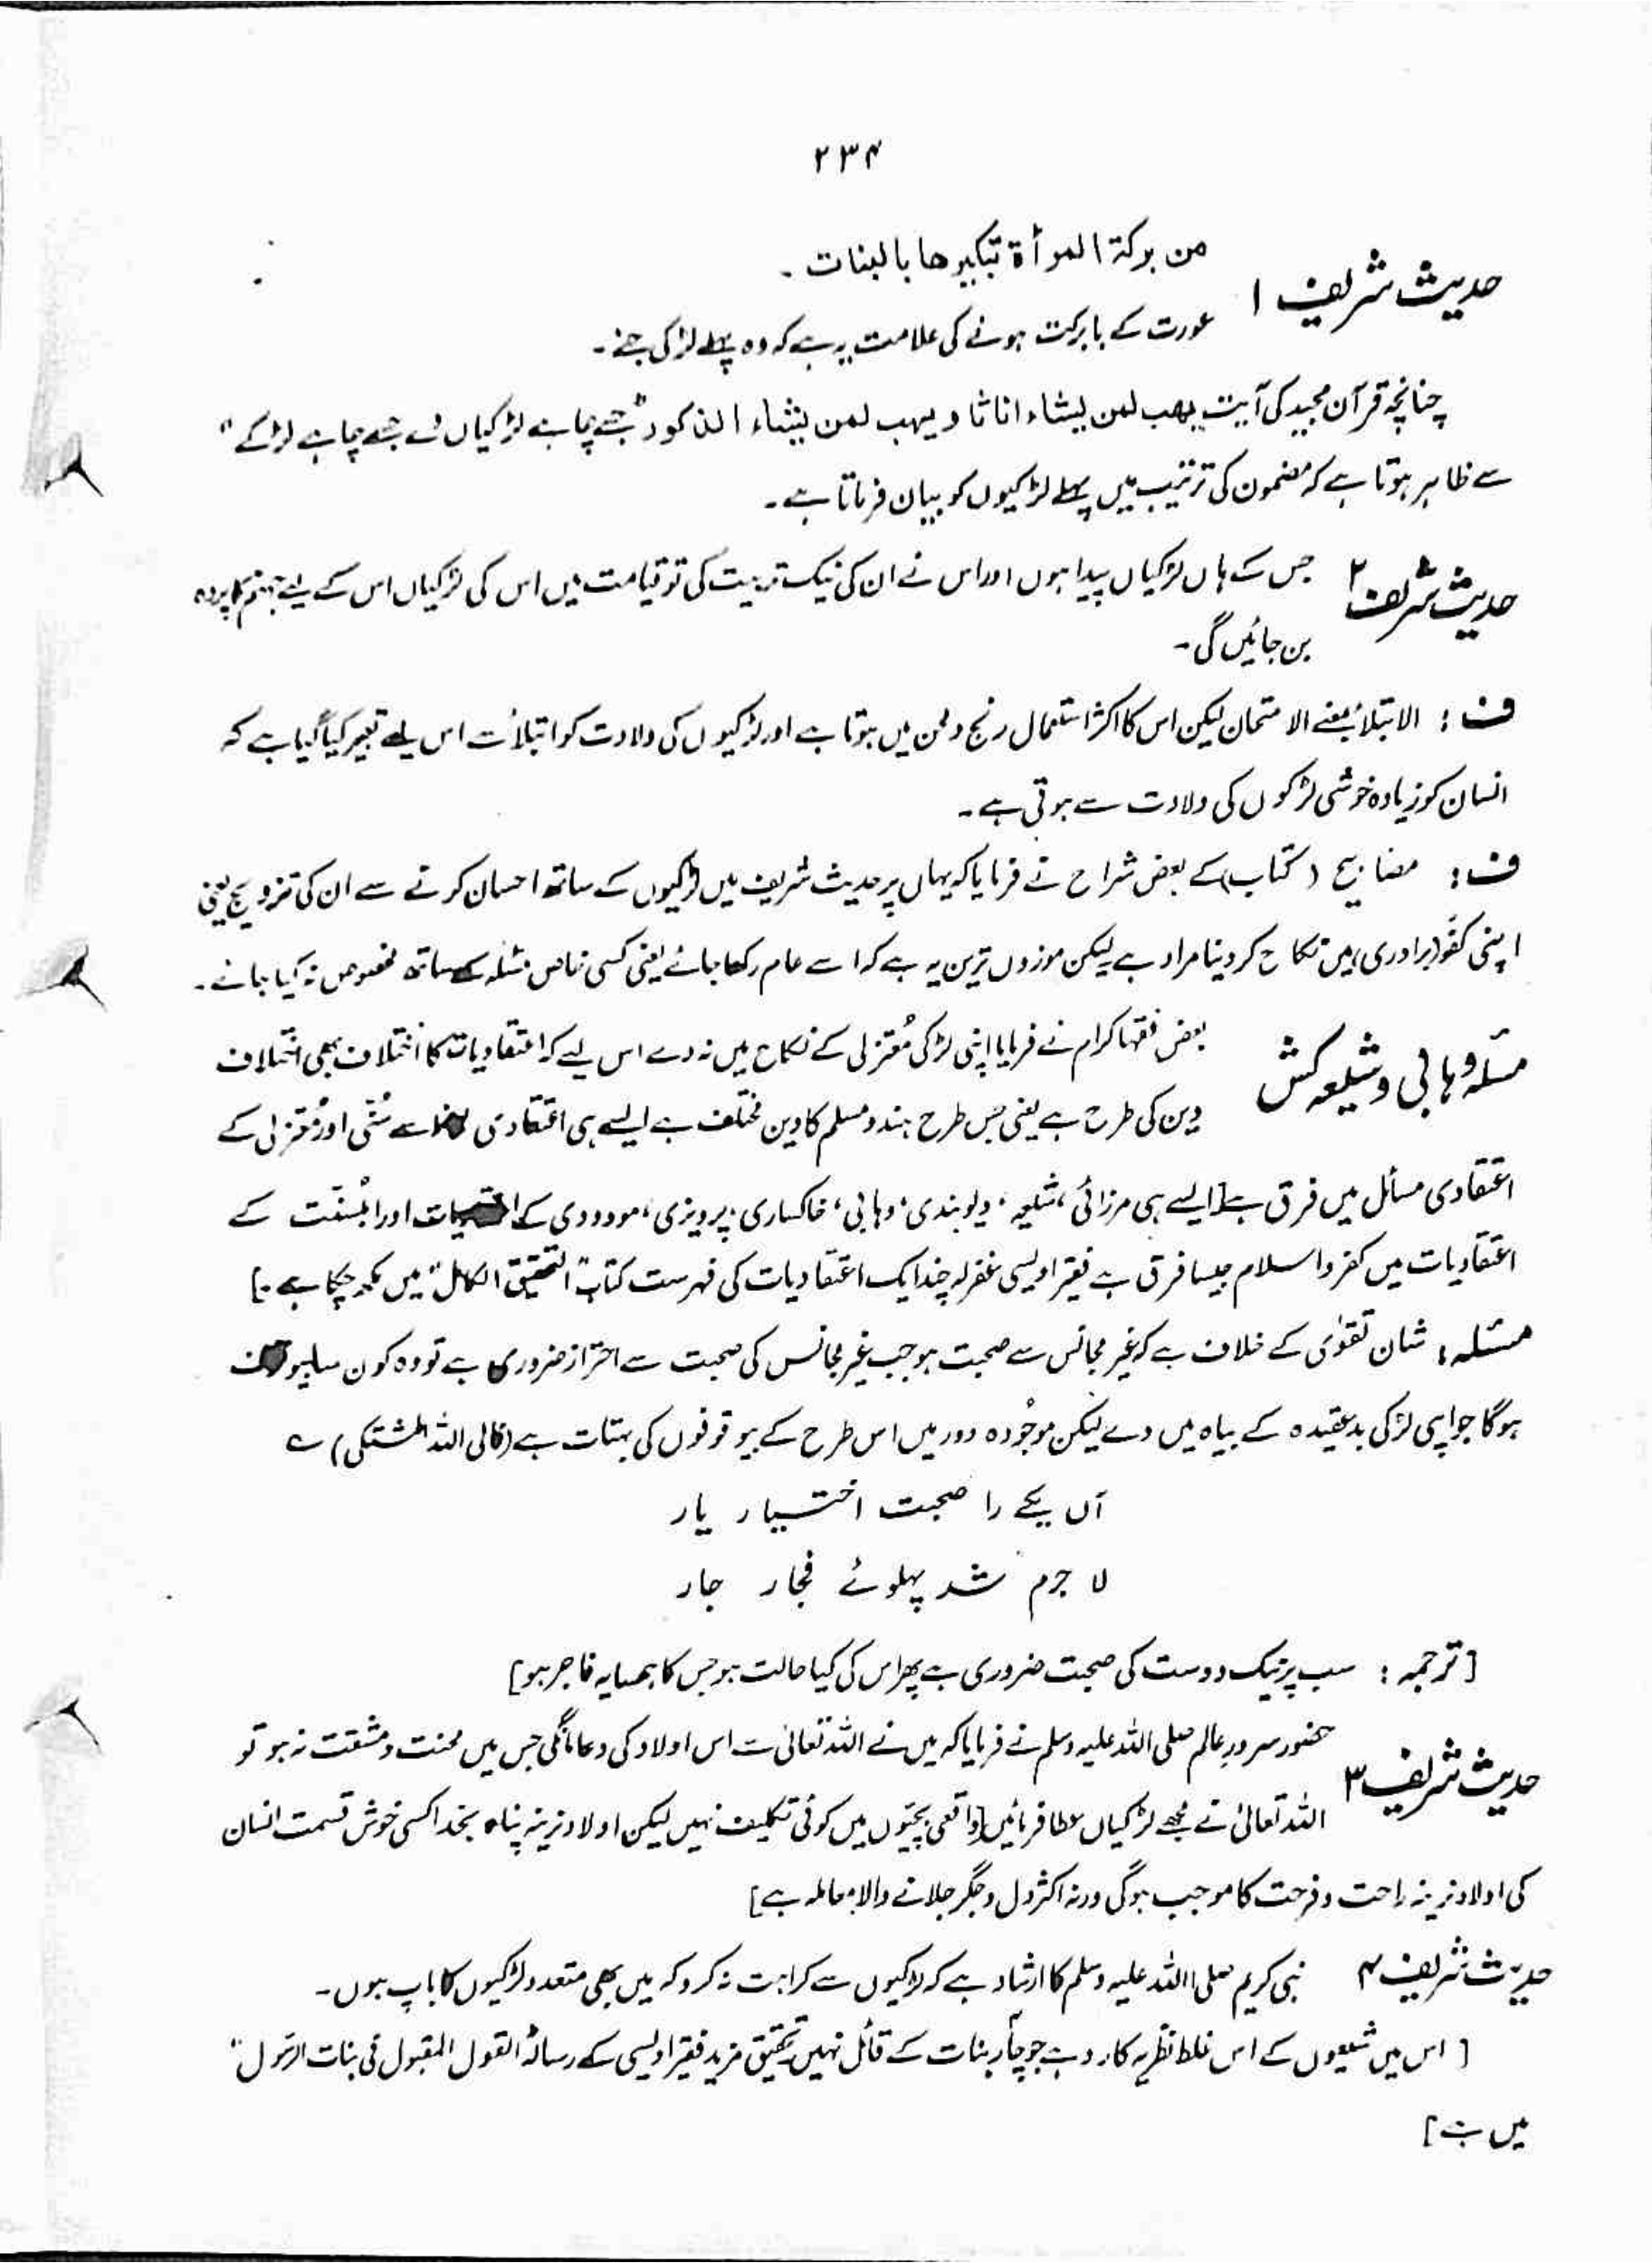 ۲۳۴
من بركة المرأة تبكيرها بالبنات۔
حدیث شریف ۱
عورت کے بابرکت ہونے کی علامت یہ ہے کہ وہ پہلے لڑکی جنے۔
چنانچہ قرآن مجید کی آیت یھب لمن یشاء اناثا و یھب لمن یشاء الذکور "جسے چاہے لڑکیاں دے جسے چاہے لڑکے"
سے ظاہر ہوتا ہے کہ مضمون کی ترتیب میں پہلے لڑکیوں کو بیان فرماتا ہے۔
حدیث شریف ۲ جس کے ہاں لڑکیاں پیدا ہوں اور اس نے ان کی نیک تربیت کی تو قیامت میں اس کی لڑکیاں اس کے لیے جہنم کا پردہ
بن جائیں گی۔
ف : الابتلاء بمعنے الامتحان لیکن اس کا اکثر استعمال رنج و محن میں ہوتا ہے اور لڑکیوں کی ولادت کو ابتلاء سے اس لیے تعبیر کیا گیا ہے کہ
انسان کو زیادہ خوشی لڑکوں کی ولادت سے ہوتی ہے۔
ف : مصابیح (کتاب) کے بعض شراح نے فرمایا کہ یہاں پر حدیث شریف میں لڑکیوں کے ساتھ احسان کرنے سے ان کی تزویج یعنی
اپنی کفو (برادری) میں نکاح کر دینا مراد ہے لیکن موزوں ترین یہ ہے کہ اسے عام رکھا جائے یعنی کسی خاص مسئلہ کے ساتھ مخصوص نہ کیا جائے۔
مسئلہ وہابی و شیعہ کش بعض فقہا کرام نے فرمایا اپنی لڑکی مُعتزلی کے نکاح میں نہ دے اس لیے کہ اعتقادیات کا اختلاف بھی اختلاف
دین کی طرح ہے یعنی جس طرح ہندو مسلم کا دین مختلف ہے ایسے ہی اعتقادی لحاظ سے سُنّی اور مُعتزلی کے
اعتقادی مسائل میں فرق ہے [ایسے ہی مرزائی، شیعہ، دیوبندی، وہابی، خاکساری، پرویزی، مودودی کے اور اہلسنّت کے
اعتقادیات میں کفر و اسلام جیسا فرق ہے فقیر اویسی غفرلہ چند ایک اعتقادیات کی فہرست کتاب "التحقیق الکامل" میں لکھ چکا ہے۔]
مسئلہ : شان تقوٰی کے خلاف ہے کہ غیر مجانس سے صحبت ہو جب غیر مجانس کی صحبت سے احتراز ضروری ہے تو وہ کون سا بیوقوف
ہوگا جو اپنی لڑکی بدعقیدہ کے بیاہ میں دے لیکن موجُودہ دور میں اس طرح کے بیوقوفوں کی بہتات ہے (فالی اللہ المشتکی) ے
آں یکے را صحبت اختیار یار
لا جرم شد پہلوئے فجار جار
[ترجمہ : سب پر نیک دوست کی صحبت ضروری ہے پھر اس کی کیا حالت ہو جس کا ہمسایہ فاجر ہو]
حدیث شریف ۳ حضور سرورِ عالم صلی اللہ علیہ وسلم نے فرمایا کہ میں نے اللہ تعالیٰ سے اس اولاد کی دعا مانگی جس میں محنت و مشقت نہ ہو تو
اللہ تعالیٰ نے مجھے لڑکیاں عطا فرمائیں [واقعی بچّیوں میں کوئی تکلیف نہیں لیکن اولاد نرینہ پناہ بخدا کسی خوش قسمت انسان
کی اولاد نرینہ راحت و فرحت کا موجب ہوگی ورنہ اکثر دل و جگر جلانے والا معاملہ ہے]
حدیث شریف ۴ نبی کریم صلی اللہ علیہ وسلم کا ارشاد ہے کہ لڑکیوں سے کراہت نہ کرو کہ میں بھی متعدد لڑکیوں کا باپ ہوں۔
[اس میں شیعوں کے اس غلط نظریہ کا رد ہے جو چار بنات کے قائل نہیں تحقیق مزید فقیر اویسی کے رسالہ "القول المقبول فی بنات الرسول"
میں ہے]